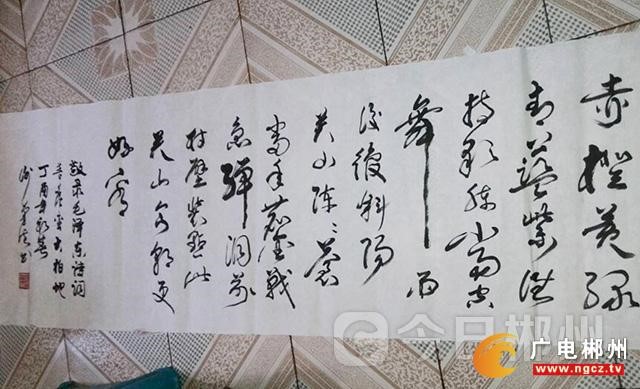 赤橙黄绿
青蓝紫谁
持彩练当空
舞雨
后复斜阳
关山阵々苍
当年鏖战
急弹洞前
村壁装点此
关山今朝更
好看
敬录毛泽东诗词
菩萨蛮大柏地
丁酉年初春
书
今日郴州
广电郴州
www.ngcz.tv